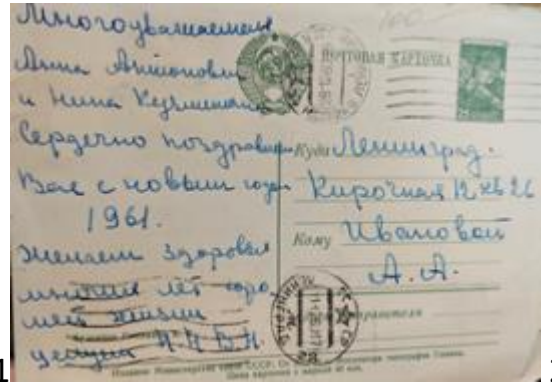 Многоуважаемые
Анна Антоновна
и Нина Кузьминична
Сердечно поздравляем
Вас с новым годом
1961.
Желаем здоровья
многие лет хоро
шей жизни
ПОЧТОВАЯ КАРТОЧКА
Куда Ленинград.
Кирочная 12 кв 26
Кому Ивановой
А. А.
ЛЕНИНГРАД